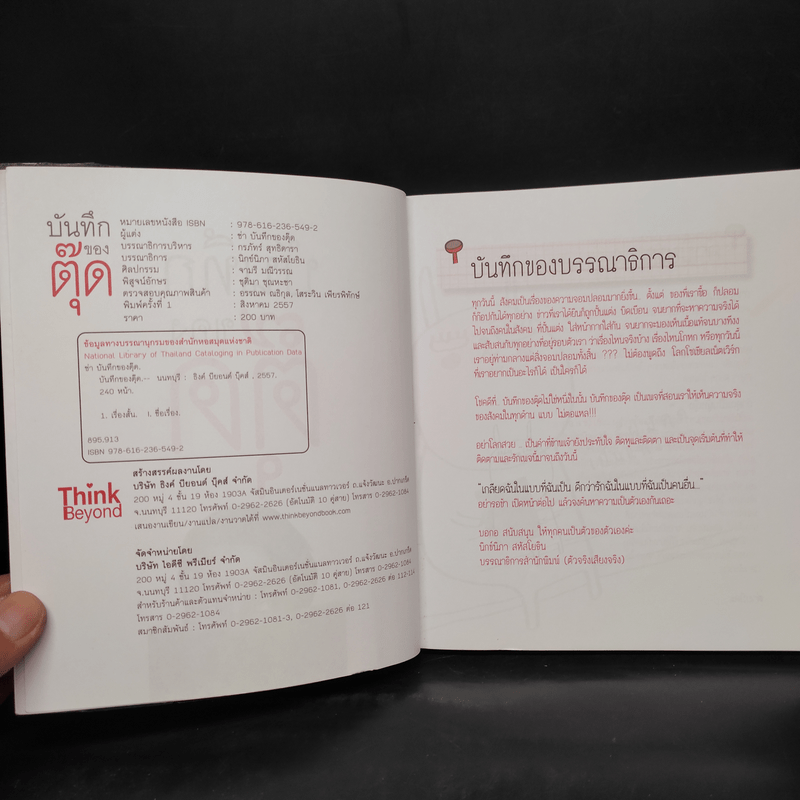 บันทึก
ของ
ตุ๊ด
หมายเลขหนังสือ ISBN : 978-616-236-549-2
ผู้แต่ง : ช่า บันทึกของตุ๊ด
บรรณาธิการบริหาร : กรภัทร์ สุทธิดารา
บรรณาธิการ : นิกข์นิภา สหัสโยธิน
ศิลปกรรม : จามรี มณีวรรณ
พิสูจน์อักษร : ชุติมา ชุณหะชา
ตรวจสอบคุณภาพสินค้า : อรรณพ ณธิกุล, ไสระวิน เพียรพิทักษ์
พิมพ์ครั้งที่ 1 : สิงหาคม 2557
ราคา : 200 บาท
ข้อมูลทางบรรณานุกรมของสำนักหอสมุดแห่งชาติ
National Library of Thailand Cataloging in Publication Data
ช่า บันทึกของตุ๊ด.
บันทึกของตุ๊ด.-- นนทบุรี : ธิงค์ บียอนด์ บุ๊คส์, 2557.
240 หน้า.
1. เรื่องสั้น. I. ชื่อเรื่อง.
895.913
ISBN 978-616-236-549-2
Think
Beyond
สร้างสรรค์ผลงานโดย
บริษัท ธิงค์ บียอนด์ บุ๊คส์ จำกัด
200 หมู่ 4 ชั้น 19 ห้อง 1903A จัสมินอินเตอร์เนชั่นแนลทาวเวอร์ ถ.แจ้งวัฒนะ อ.ปากเกร็ด
จ.นนทบุรี 11120 โทรศัพท์ 0-2962-2626 (อัตโนมัติ 10 คู่สาย) โทรสาร 0-2962-1084
เสนองานเขียน/งานแปล/งานวาดได้ที่ www.thinkbeyondbook.com
จัดจำหน่ายโดย
บริษัท ไอดีซี พรีเมียร์ จำกัด
200 หมู่ 4 ชั้น 19 ห้อง 1903A จัสมินอินเตอร์เนชั่นแนลทาวเวอร์ ถ.แจ้งวัฒนะ อ.ปากเกร็ด
จ.นนทบุรี 11120 โทรศัพท์ 0-2962-2626 (อัตโนมัติ 10 คู่สาย) โทรสาร 0-2962-1084
สำหรับร้านค้าและตัวแทนจำหน่าย : โทรศัพท์ 0-2962-1081, 0-2962-2626 ต่อ 112-114
โทรสาร 0-2962-1084
สมาชิกสัมพันธ์ : โทรศัพท์ 0-2962-1081-3, 0-2962-2626 ต่อ 121
บันทึกของบรรณาธิการ
ทุกวันนี้ สังคมเป็นเรื่องของความจอมปลอมมากยิ่งขึ้น.. ตั้งแต่ ของที่เราซื้อ ก็ปลอม
ก็ก๊อปกันได้ทุกอย่าง ข่าวที่เราได้ยินก็ถูกปั้นแต่ง บิดเบือน จนยากที่จะหาความจริงได้
ไปจนถึงคนในสังคม ที่ปั้นแต่ง ใส่หน้ากากใส่กัน จนยากจะมองเห็นเนื้อแท้จนบางทีงง
และสับสนกับทุกอย่างที่อยู่รอบตัวเรา ว่าเรื่องไหนจริงบ้าง เรื่องไหนโกหก หรือทุกวันนี้
เราอยู่ท่ามกลางแต่สิ่งจอมปลอมทั้งสิ้น ??? ไม่ต้องพูดถึง โลกโซเชียลเน็ตเวิร์ก
ที่เราอยากเป็นอะไรก็ได้ เป็นใครก็ได้
โชคดีที่.. บันทึกของตุ๊ดไม่ใช่หนึ่งในนั้น บันทึกของตุ๊ด เป็นเพจที่สอนเราให้เห็นความจริง
ของสังคมในทุกด้าน แบบ ไม่ตอแหล!!!
อย่าโลกสวย .. เป็นคำที่ข้าพเจ้ายังประทับใจ ติดหูและติดตา และเป็นจุดเริ่มต้นที่ทำให้
ติดตามและรักเพจนี้มาจนถึงวันนี้
"เกลียดฉันในแบบที่ฉันเป็น ดีกว่ารักฉันในแบบที่ฉันเป็นคนอื่น..."
อย่ารอช้า เปิดหน้าต่อไป แล้วจงค้นหาความเป็นตัวเองกันเถอะ
บอกอ สนับสนุน ให้ทุกคนเป็นตัวของตัวเองค่ะ
นิกข์นิภา สหัสโยธิน
บรรณาธิการสำนักพิมพ์ (ตัวจริงเสียงจริง)